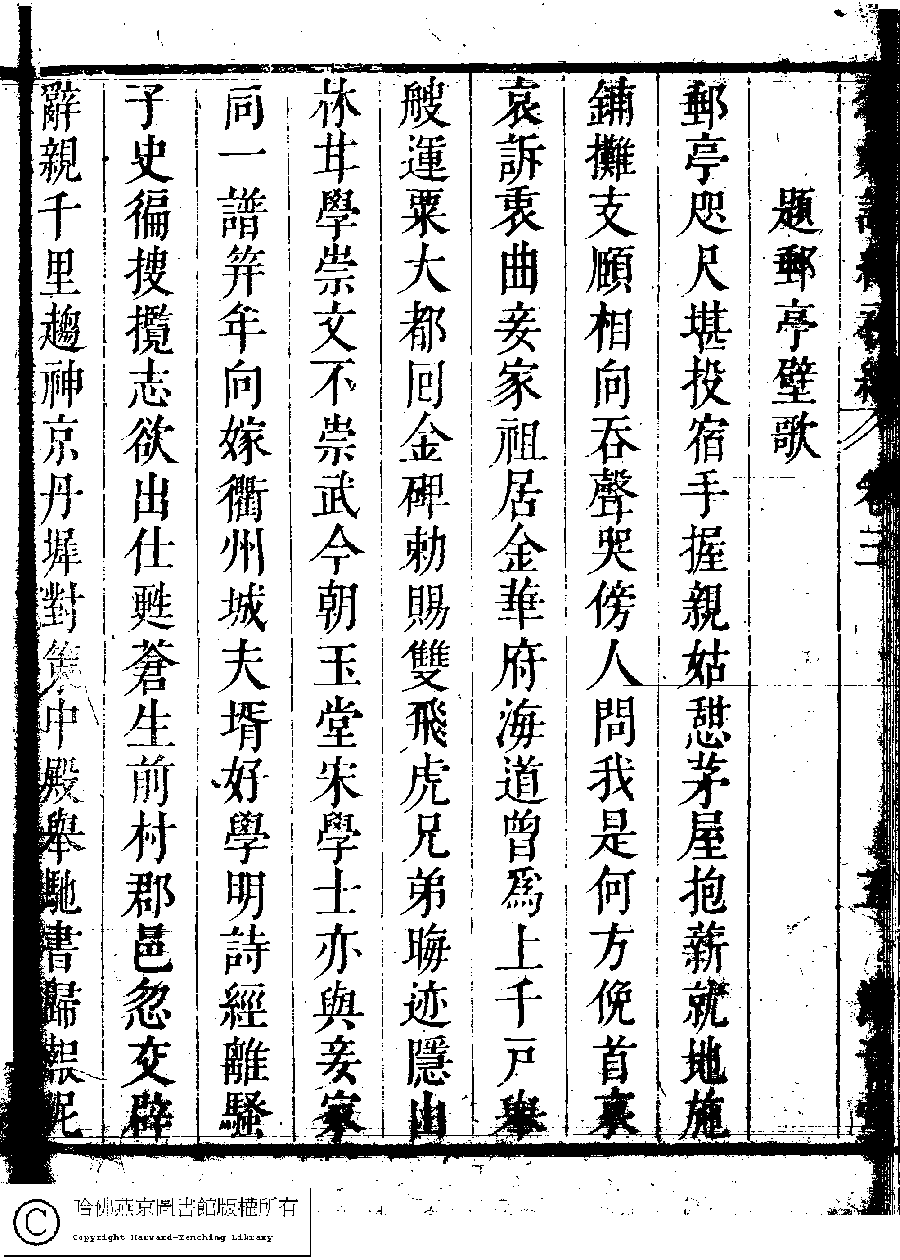 題郵亭壁歌
郵亭咫尺堪投宿手握親姑憇茅屋抱薪就地旋
鋪攤支頤相向吞聲哭傍人問我是何方俛首哀
哀訴衷曲妾家祖居金華府海道曾爲上千戸舉
艘運粟大都回金碑勅賜雙飛虎兄弟晦迹隱山
林甘學崇文不崇武今朝玉堂宋學士亦與妾家
同一譜笄年向嫁衢州城夫壻好學明詩經離騷
子史徧搜攬志欲出仕甦蒼生前村郡邑忽交辟
辭親千里趨神京丹墀對策中殿舉馳書歸報
卷三
哈佛燕京圖書館版權所有
Copyright Harvard-Yenching Library